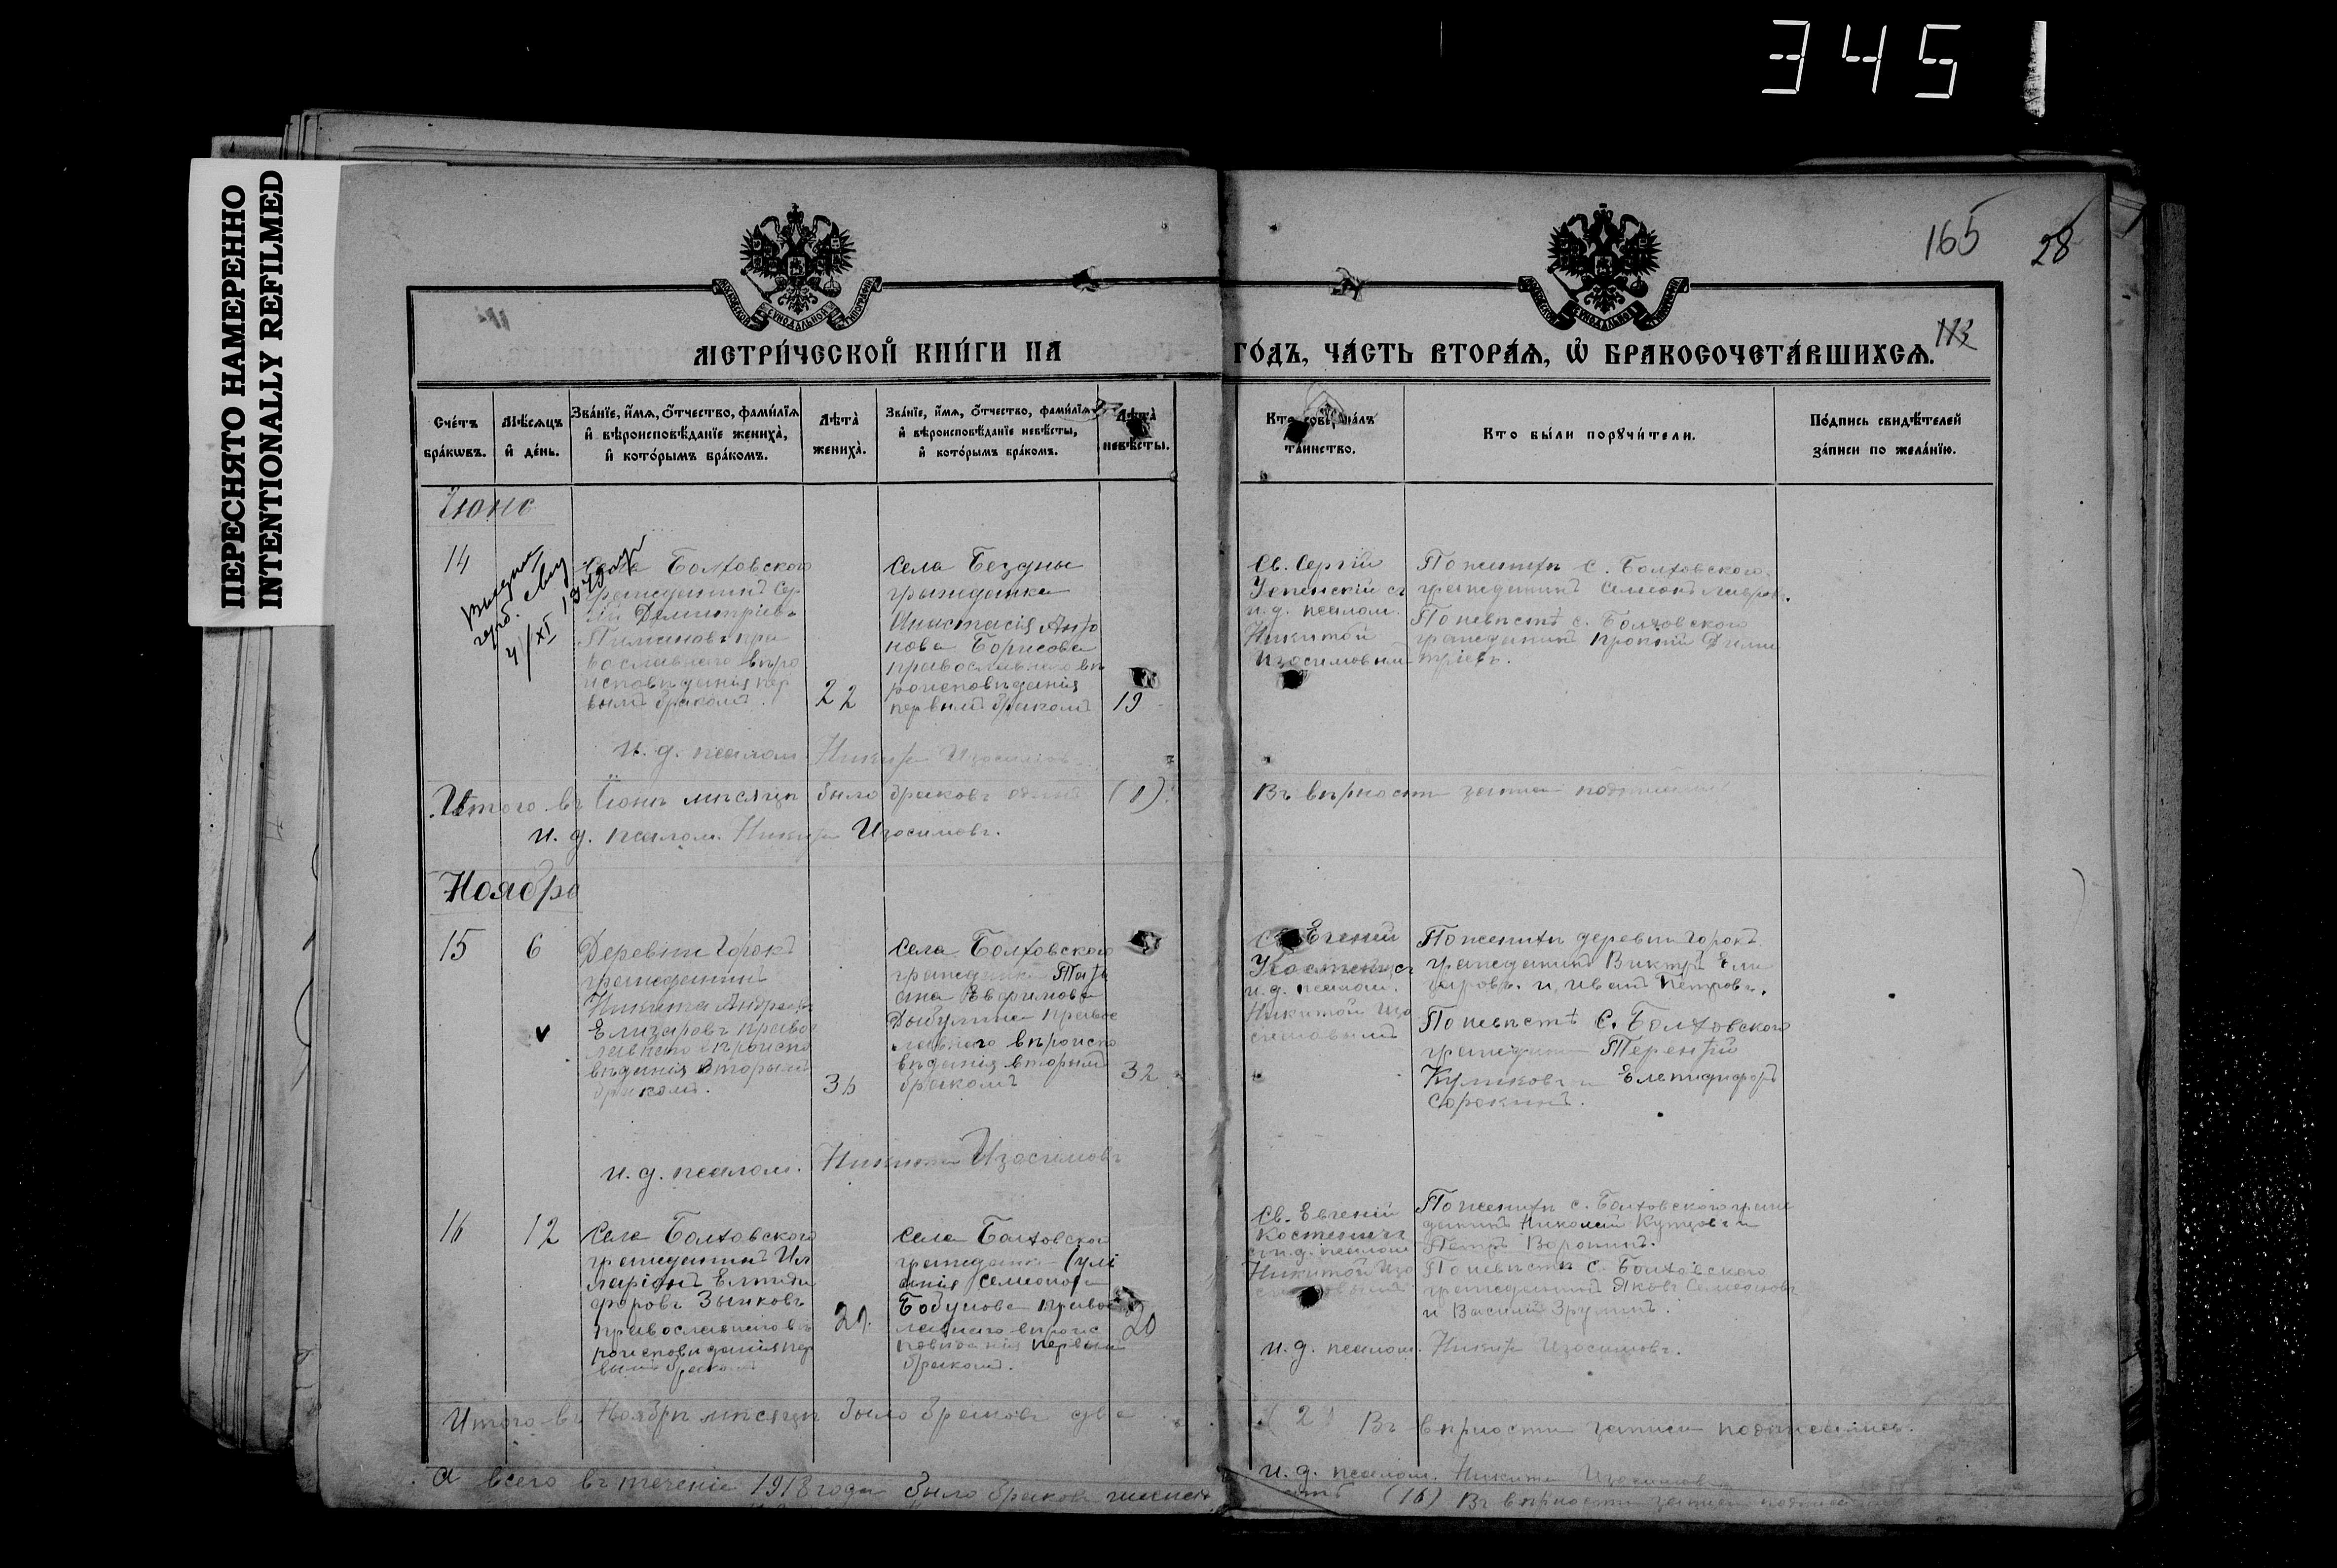 3451
ПЕРЕСНЯТО НАМЕРЕННО
INTENTIONALLY REFILMED
165
28
113
МЕТРИ́ЧЕСКОЙ КНИ́ГИ НА ГО́ДЪ, ЧА́СТЬ ВТОРА́Я, Ѡ БРАКОСОЧЕТА́ВШИХСЯ.
Сче́тъ бра́кѡвъ.
Мѣ́сяцъ и҆ де́нь.
Зва́нїе, и҆́мя, ѻ҆́тчество, фамі́лїя
и҆ вѣроисповѣ́данїе жениха̀,
и҆ кото́рымъ бра́комъ.
Лѣта̀ жениха̀.
Зва́нїе, и҆́мя, ѻ҆́тчество, фамі́лїя
и҆ вѣроисповѣ́данїе невѣ́сты,
и҆ кото́рымъ бра́комъ.
Лѣта̀ невѣ́сты.
Кто̀ соверша́лъ та́инство.
Кто бы́ли порꙋчи́тели.
По́дпись свидѣ́телей
за́писи по жела́нїю.
Іюнь
14
Села Болховского
гражданинъ Сер
гій Димитріевъ
пра
вославнаго вѣро
исповѣданія пер
вымъ бракомъ.
22
Села Бездны
гражданка
Анастасія Анто
нова Борисова
православнаго вѣ
роисповѣданія
первымъ бракомъ
19
Св. Сергій
Успенскій съ
и. д. псалом.
Никитой
Изосимовым
По женихѣ с. Болховского
гражданинъ Симеонъ Лавров.
По невѣстѣ с. Болховского
гражданинъ Дими
тріевъ.
и. д. псалом. Никита Изосимовъ
Итого въ Іюнѣ мѣсяцѣ было браковъ одинъ (1).
Въ вѣрности записи
и. д. псалом. Никита Изосимовъ.
Ноябрь
15
6
Деревни Горокъ
гражданинъ
Никита Андреевъ
Елизаровъ правос
лавнаго вѣроиспо
вѣданія вторымъ
бракомъ.
Села Болховского
гражданка Татi
ана
правос
лавнаго вѣроиспо
вѣданія вторымъ
бракомъ
32
Евгеній
съ
и. д. псалом.
Никитой Изо
симовымъ
По женихѣ деревни Горокъ
гражданинъ Викторъ Ели
заровъ и Иванъ Петровъ.
По невѣстѣ с. Болховского
граждане Терентій
Куликовъ и
Сорокинъ.
и. д. псалом. Никита Изосимовъ
16
12
Села Болховского
гражданинъ Ил
ларіонъ
форовъ Зыковъ
православнаго вѣ
роисповѣданія пер
вымъ бракомъ
Села Болховского
гражданка Іулі
анія Семенова
правос
лавнаго вѣроис
повѣданія первым
бракомъ.
20
Св. Евгеній
съ и. д. псалом
Никитой Изо
симовымъ
По женихѣ с. Болховского граж
данинъ Николай и
Петръ Воронинъ.
По невѣстѣ с. Болховского
гражданинъ Яковъ
и Василій
и. д. псалом. Никита Изосимовъ.
Итого въ Ноябрѣ мѣсяцѣ было браковъ два (2) Въ вѣрности записи подписались.
и. д. псалом. Никита Изосимовъ
А всего въ теченіе 1918 года было браковъ шестнад
цать (16) Въ вѣрности записи